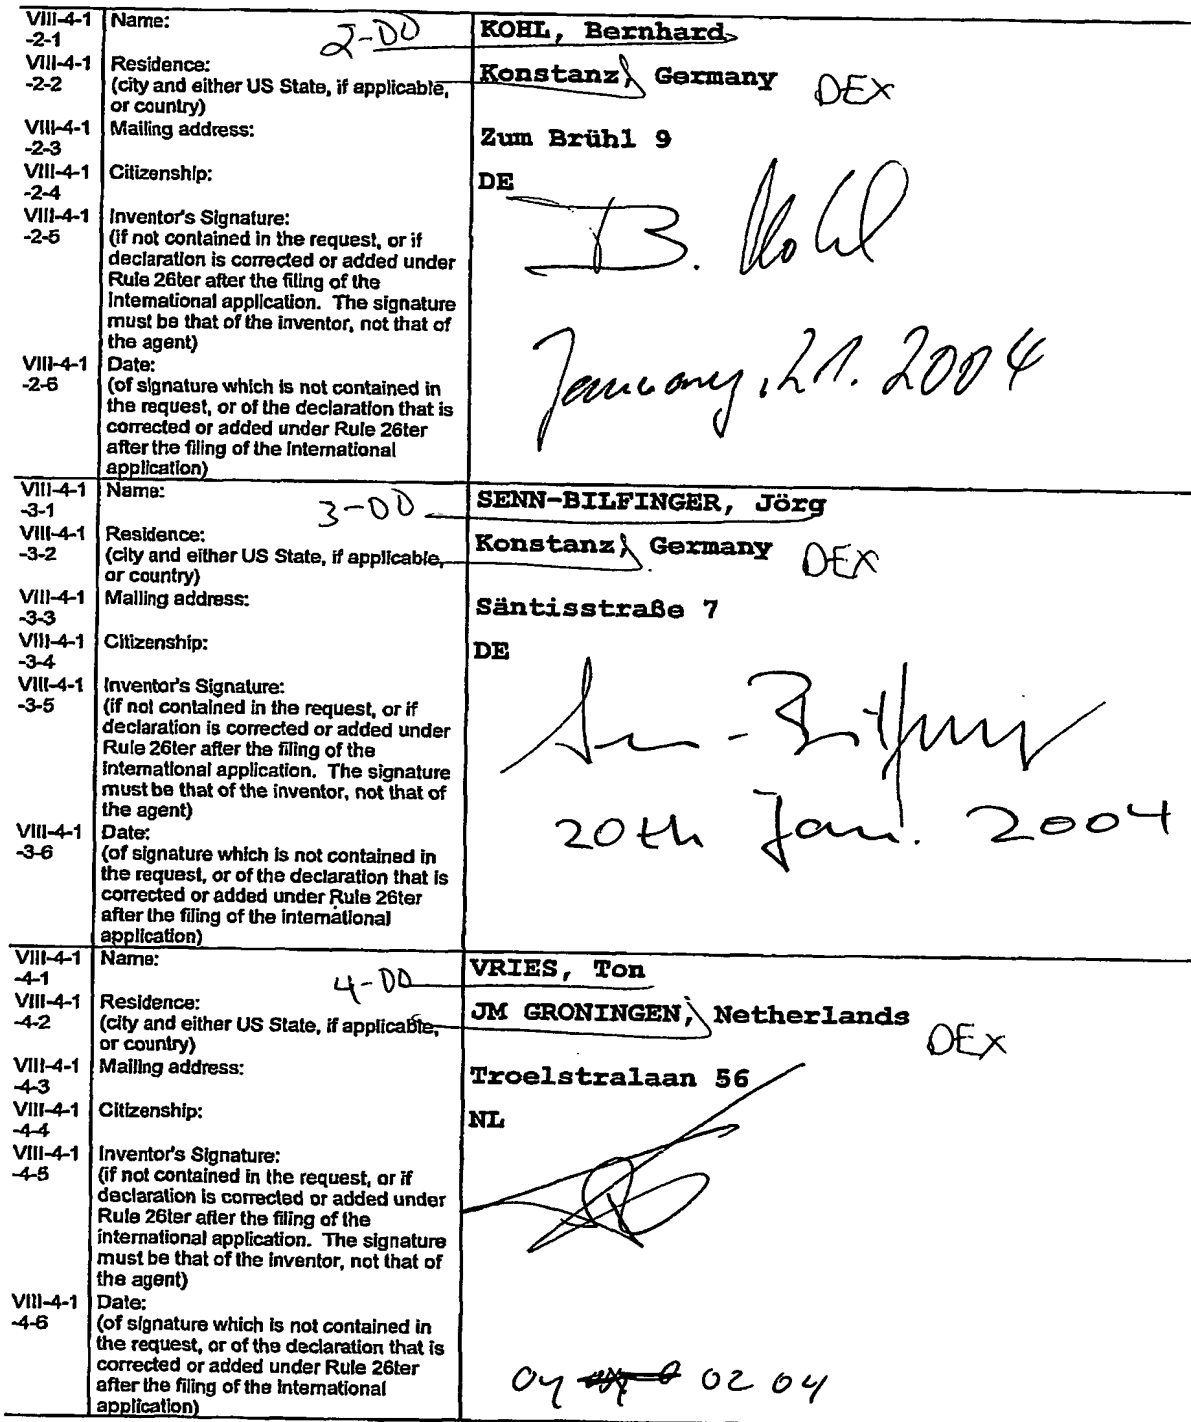 VIII-4-1 Name: 2-00 KOHL, Bernhard
-2-1
VIII-4-1 Residence: Konstanz, Germany DEX
-2-2 (city and either US State, if applicable,
or country)
VIII-4-1 Mailing address: Zum Brühl 9
-2-3
VIII-4-1 Citizenship: DE
-2-4
VIII-4-1 Inventor's Signature: B. Kohl
-2-5 (if not contained in the request, or if
declaration is corrected or added under
Rule 26ter after the filing of the
international application. The signature
must be that of the inventor, not that of
the agent)
VIII-4-1 Date: January, 21. 2004
-2-6 (of signature which is not contained in
the request, or of the declaration that is
corrected or added under Rule 26ter
after the filing of the international
application)
VIII-4-1 Name: 3-00 SENN-BILFINGER, Jörg
-3-1
VIII-4-1 Residence: Konstanz, Germany DEX
-3-2 (city and either US State, if applicable,
or country)
VIII-4-1 Mailing address: Säntisstraße 7
-3-3
VIII-4-1 Citizenship: DE
-3-4
VIII-4-1 Inventor's Signature:
-3-5 (if not contained in the request, or if
declaration is corrected or added under
Rule 26ter after the filing of the
international application. The signature
must be that of the inventor, not that of
the agent)
VIII-4-1 Date: 20th Jan. 2004
-3-6 (of signature which is not contained in
the request, or of the declaration that is
corrected or added under Rule 26ter
after the filing of the international
application)
VIII-4-1 Name: 4-00 VRIES, Ton
-4-1
VIII-4-1 Residence: JM GRONINGEN, Netherlands DEX
-4-2 (city and either US State, if applicable,
or country)
VIII-4-1 Mailing address: Troelstralaan 56
-4-3
VIII-4-1 Citizenship: NL
-4-4
VIII-4-1 Inventor's Signature:
-4-5 (if not contained in the request, or if
declaration is corrected or added under
Rule 26ter after the filing of the
international application. The signature
must be that of the inventor, not that of
the agent)
VIII-4-1 Date: 04 02 04
-4-6 (of signature which is not contained in
the request, or of the declaration that is
corrected or added under Rule 26ter
after the filing of the international
application)